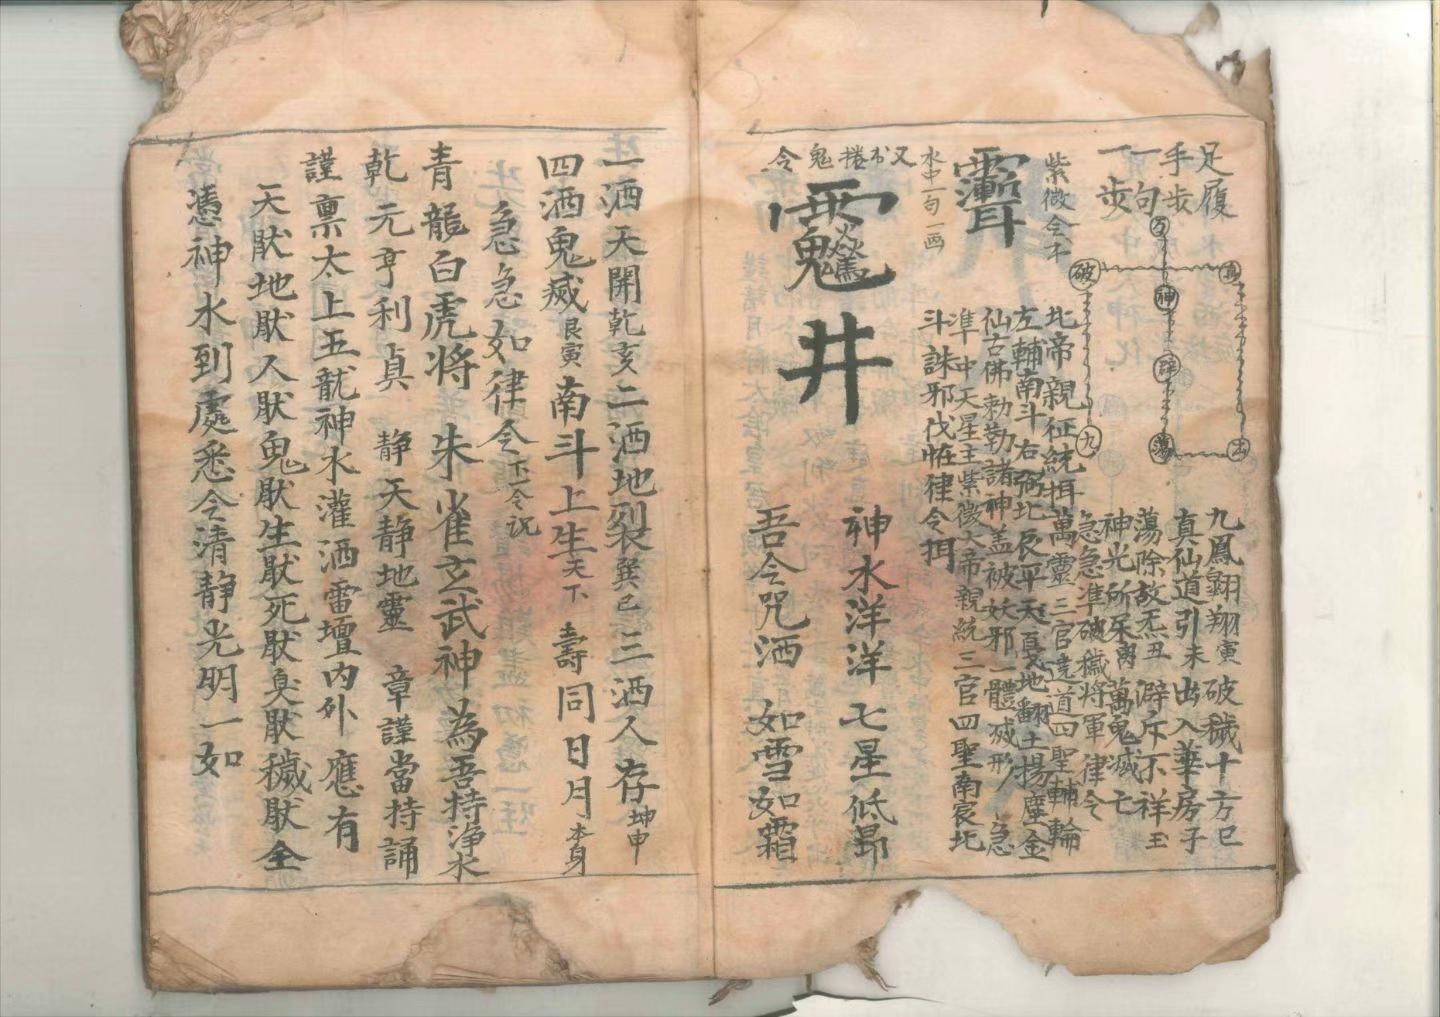 足履
手步
一句
一步
万
神
辟
蕩
破
九
真
玉
九鳳翺翔寅破穢十方巳
真仙道引未出入華房子
蕩除故炁丑辟斥不祥玉
神光所及萬鬼滅亡
急急准破穢將軍律令
紫微令牟
北帝親征統揖萬靈三官遶道四聖輔輪
左輔南斗右弼北辰平天戛地翻土揚塵金
仙古佛勅勒諸神盖被妖邪一體滅形急
准中天星主紫微大帝親統三官四聖南宸北
斗誅邪伐恠律令揖
水中一句一画
又书捲鬼令
井
神水洋洋七星低昂
吾令咒洒如雪如霜
一洒天開乾亥二洒地裂巽巳三洒人存坤申
四洒鬼滅艮寅南斗上生天下壽同日月本身
急急如律令下令訣
青龍白虎將朱雀玄武神為吾持净水
乾元亨利貞 静天静地靈 章謹當持誦
謹禀太上五龍神水灌洒雷壇内外應有
天猒地猒人猒鬼猒生猒死猒臭猒穢猒全
憑神水到處悉令清静光明一如